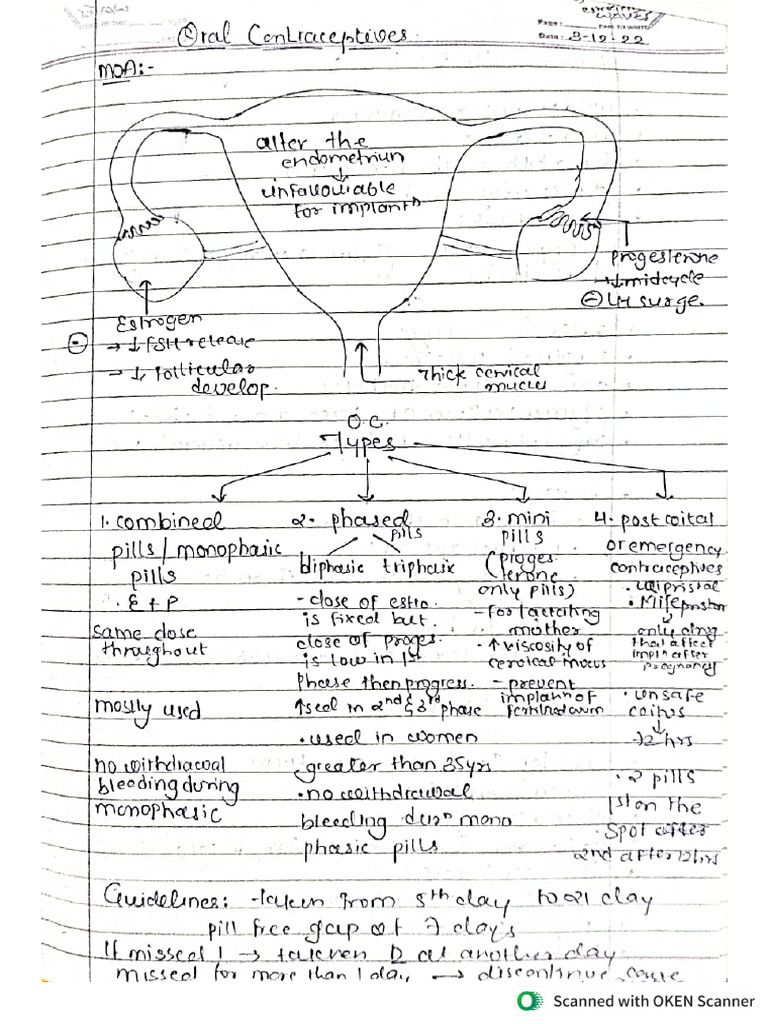 Oral Contraceptives
WAVES
Page:
Date: 3-12-22
MOA:-
alter the
endometriun
↓
unfavouiable
for implantn
Progesterone
→ ↓ midcycle
⊖ LH surge.
Estrogen
⊖ → ↓ FSH release
→ ↓ follicular
develop.
Thick cervical
mucus
O.C.
Types
1. combined
pills/monophasic
pills
. E + P
same dose
throughout
mostly used
no withdracoal
bleeding during
monophasic
2. phased
pills
biphasic triphasix
- dose of estro.
is fixed but
dose of proges.
is low in 1st
phase then progress.
↑sed in 2nd & 3rd phase
• used in women
greater than 35yrs
• no withdrawal
bleeding durn mono
phasic pills
3. mini
pills
(proges
terone
only pills)
- for lactating
mother
- ↑ viscosity of
cervical mucus
- prevent
implann of
4. post coital
or emergency
contraceptives
• ulipristal
•
↓
only drug
that affect
impln after
pregnancy
• unsafe
coitus
↓
72 hrs
• 2 pills
1st on the
spot after
2nd after 12hrs
Guidelines: - taken from 5th day to 21 day
pill free gap of 7 days
If missed 1 → takken 2 at another day
missed for more than 1 day → discontinue
Scanned with OKEN Scanner